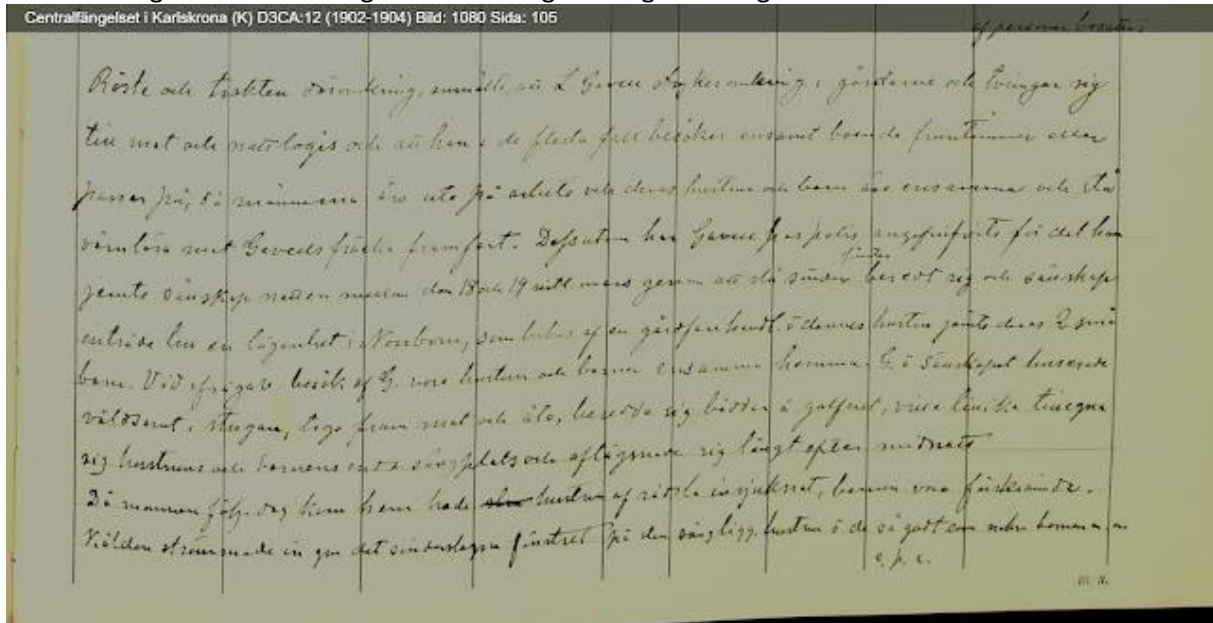 Centralfängelset i Karlskrona (K) D3CA:12 (1902-1904) Bild: 1080 Sida: 105
af personer bosatta i
Röste och trakten deromkring, att L Gaveu stryker omkring i gårdarne och tvingar sig
till mat och natt logis och att han i de flesta fall besöker ensamt boende fruntimmer eller
passar på, då männerna äro ute på arbete och deras hustrur och barn äro ensamma och stå
värnlösa mot Gaveus fräcka framfart. Dessutom har Gaveu för det han
jemte sällskap natten mellan den 18 och 19 sistl mars genom att slå sönder fönster beredt sig och sällskap
inträde i en lägenhet i Norrbom, som bebos af en gårdfarihandl. o dennes hustru jämte deras 2 små
barn. Vid ifrågav. besök af G. voro hustrun och barnen ensamma hemma. G. o sällskapet huserade
våldsamt i stugan, togo fram mat och åto, beredde sig bäddar å golfvet, ville tillegna
sig hustruns och barnens enda sängplats och aflägsnade sig långt efter midnatt
Då mannen följ. dag kom hem hade hustrun af rädsla insjuknat, barnen voro förskrämde.
Kölden strömmade in gm det sönderslagna fönstret på den sängligg. hustrun o de så godt som